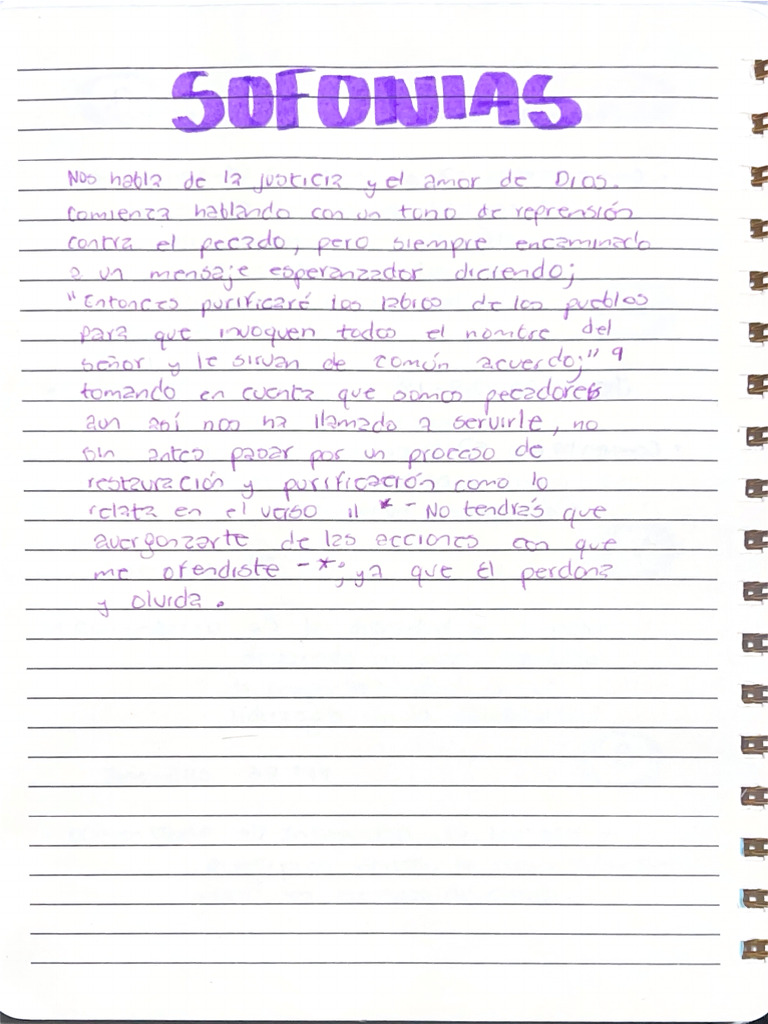 SOFONIAS
Nos habla de la justicia y el amor de Dios.
Comienza hablando con un tono de reprensión
contra el pecado, pero siempre encaminado
a un mensaje esperanzador diciendo;
"Entonces purificaré los labios de los pueblos
para que invoquen todos el nombre del
señor y le sirvan de común acuerdo;" 9
tomando en cuenta que somos pecadores
aun así nos ha llamado a servirle, no
sin antes pasar por un proceso de
restauración y purificación como lo
relata en el verso 11 * - No tendrás que
avergonzarte de las acciones con que
me ofendiste - *; ya que El perdona
y olvida.